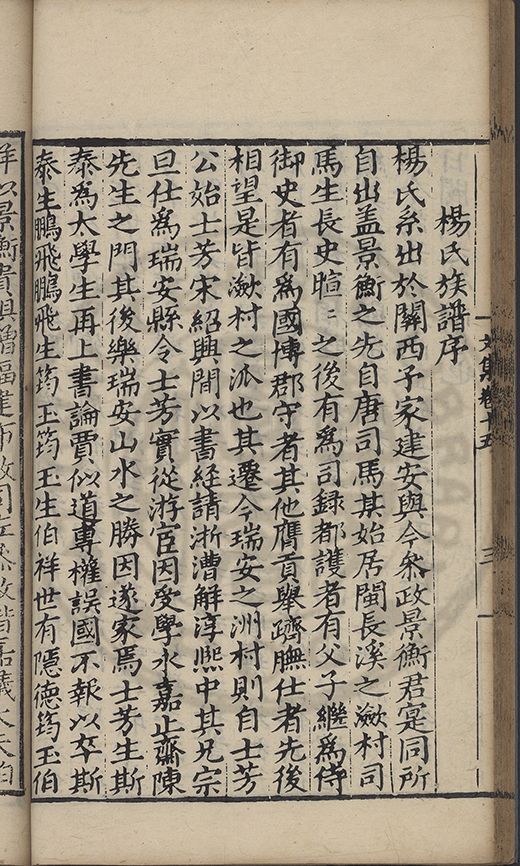 文集卷十五
三
楊氏族譜序
楊氏系出於關西子家建安與今叅政景衡君寔同所
自出盖景衡之先自唐司馬某始居閩長溪之瀲村司
馬生長史暄〻之後有為司録都護者有父子繼為侍
御史者有為國博郡守者其他膺貢舉躋膴仕者先後
相望是皆瀲村之派也其遷今瑞安之洲村則自士芳
公始士芳宋紹興間以書經請浙漕解淳熙中其兄宗
旦仕為瑞安縣令士芳實從游宦因受學永嘉止齋陳
先生之門其後樂瑞安山水之勝因遂家焉士芳生斯
泰為大學生再上書論賈似道專權誤國不報以卒斯
泰生鵬飛鵬飛生筠玉筠玉生伯祥世有隱德筠玉伯
祥以景衡貴